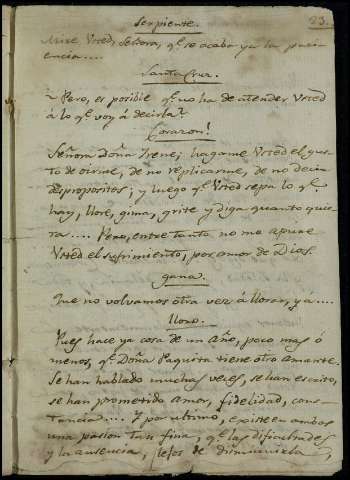 23.
Serpiente.
Mire Vsted, Señora, q.e se acaba ya la paci-
encia....
Santa Cruz.
~ Pero, es posible q.e no ha de atender Vsted
á lo q.e voy á decirla?
Corazon!
Señora Doña Irene; hagame Vsted el gus-
to de oirme, de no replicarme, de no decir
despropositos; y luego q.e Vsted sepa lo q.e
hay, llore, gima, grite y diga quanto quie-
ra.... Pero, entre tanto, no me apure
Vsted el sufrimiento, por amor de Dios.
gana.
Que no volvamos otra vez á llorar, ya....
lloro.
Pues hace ya cosa de un Año, poco mas ó
menos, q.e Doña Paquita tiene otro amante.
Se han hablado muchas veces, se han escrito,
se han prometido amor, fidelidad, cons-
tancia.... Y por ultimo, existe en ambos
una pasion tan fina, q.e las dificultades
y la ausencia, lejos de disminuirla,